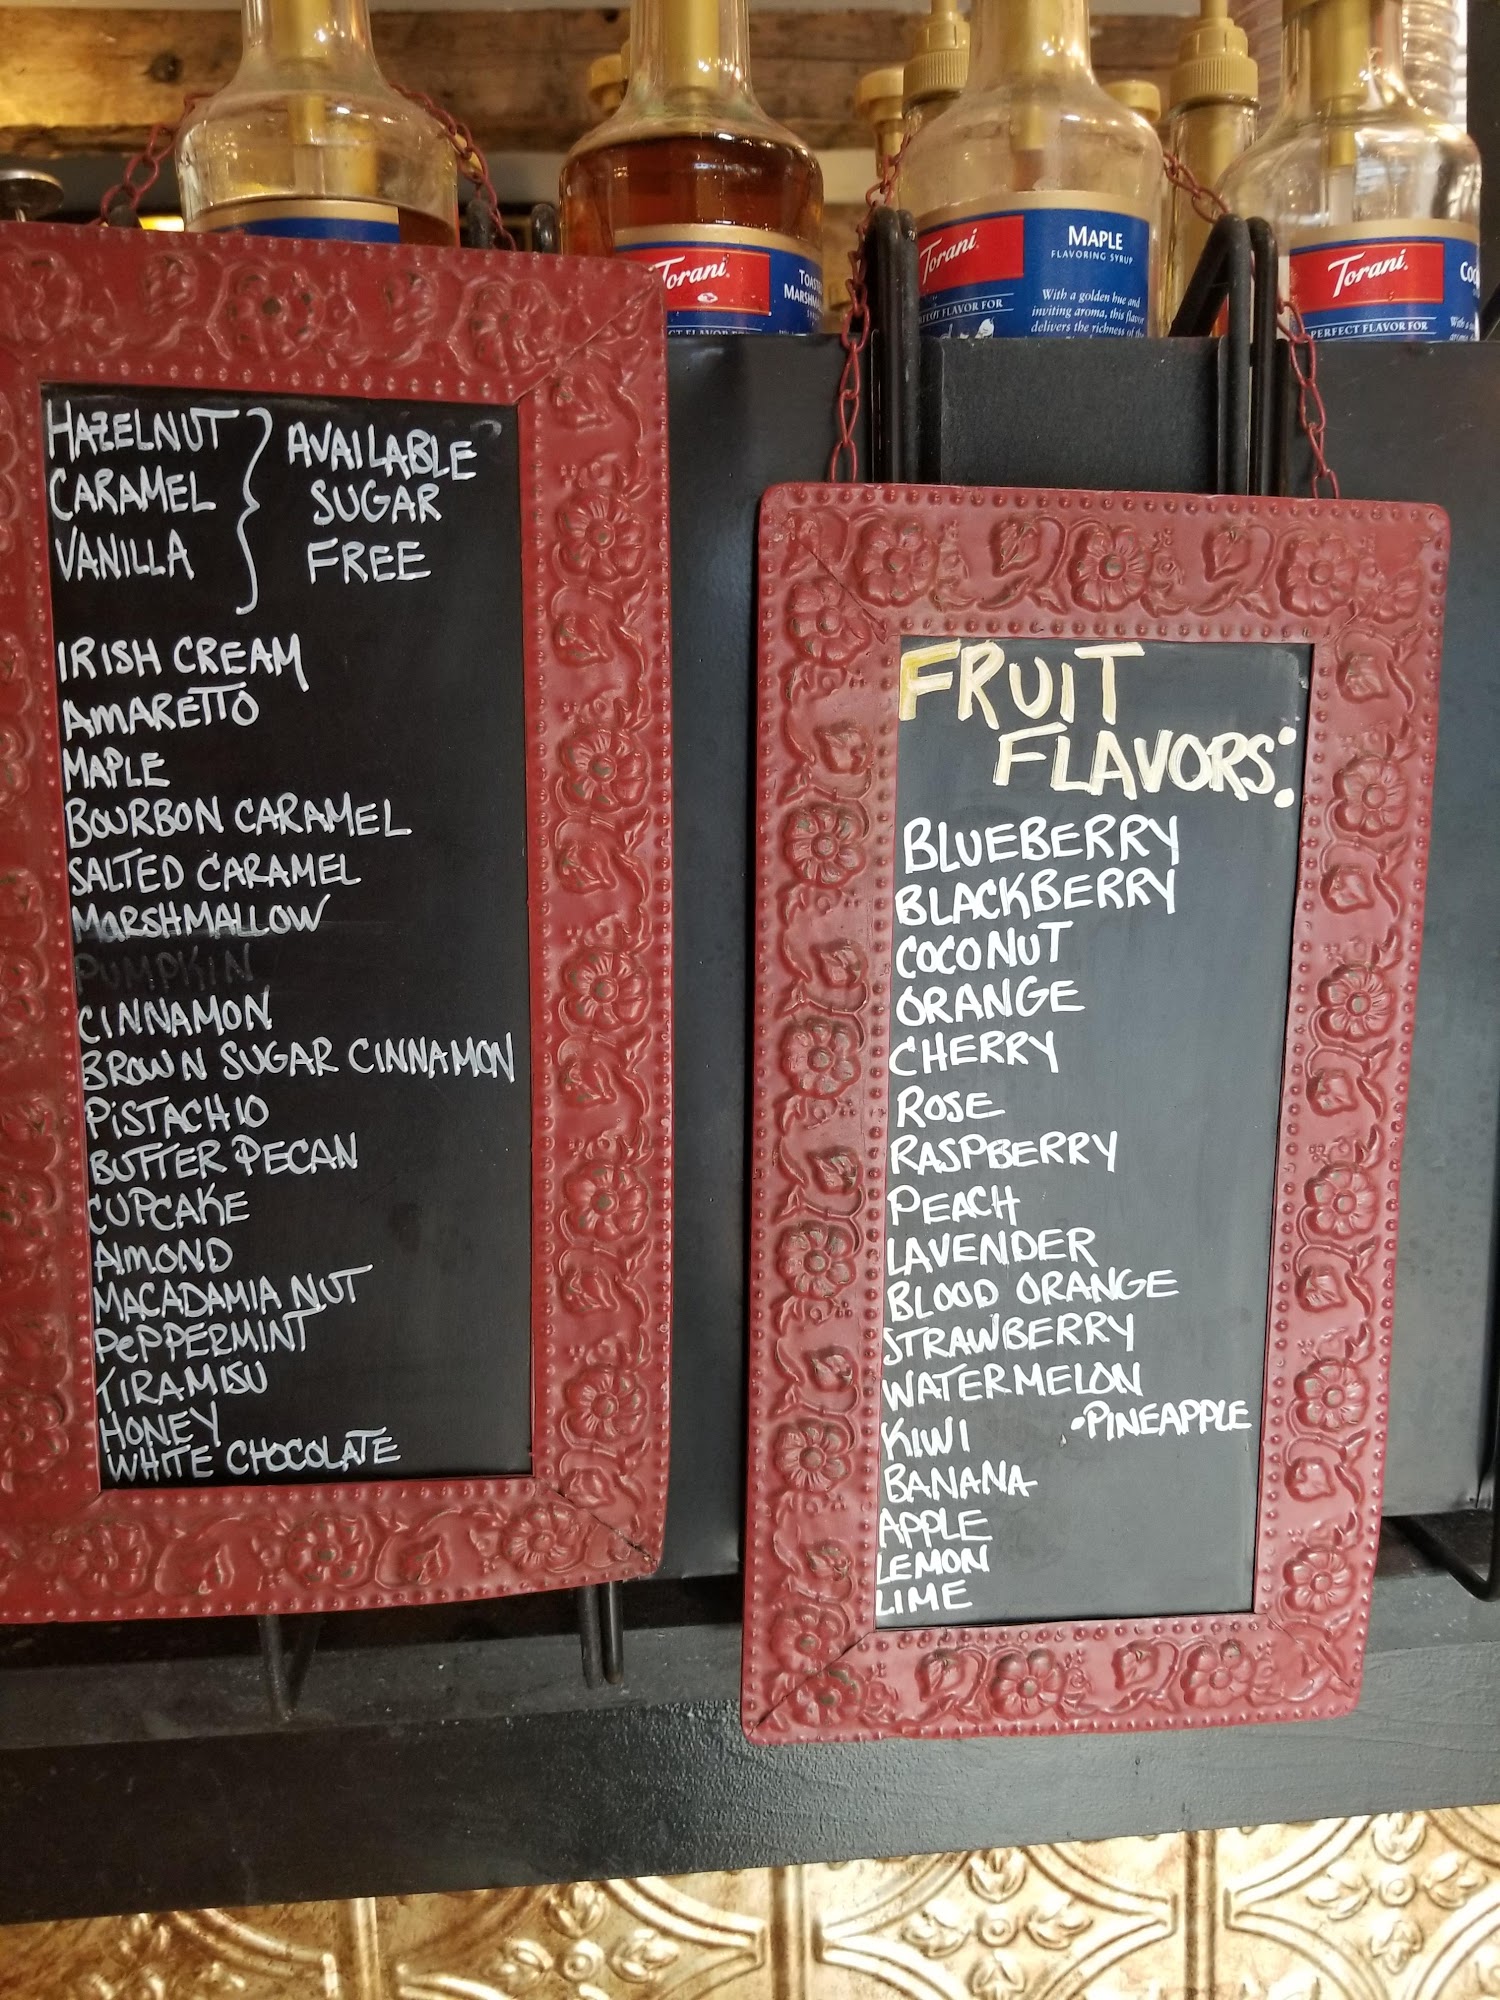 Torani
TOASTED
MARSHM
Torani
MAPLE
FLAVORING SYRUP
FLAVOR FOR
With a golden hue and
inviting aroma, this flavor
delivers the richness of the
Torani
PERFECT FLAVOR FOR
HAZELNUT
CARAMEL
VANILLA
AVAILABLE
SUGAR
FREE
IRISH CREAM
AMARETTO
MAPLE
BOURBON CARAMEL
SALTED CARAMEL
MARSHMALLOW
PUMPKIN
CINNAMON
BROWN SUGAR CINNAMON
PISTACHIO
BUTTER PECAN
CUPCAKE
ALMOND
MACADAMIA NUT
PePPERMINT
TIRAMISU
HONEY
WHITE CHOCOLATE
FRUIT
FLAVORS:
BLUEBERRY
BLACKBERRY
COCONUT
ORANGE
CHERRY
ROSE
RASPBERRY
PEACH
LAVENDER
BLOOD ORANGE
STRAWBERRY
WATERMELON
KIWI •PINEAPPLE
BANANA
APPLE
LEMON
LIME